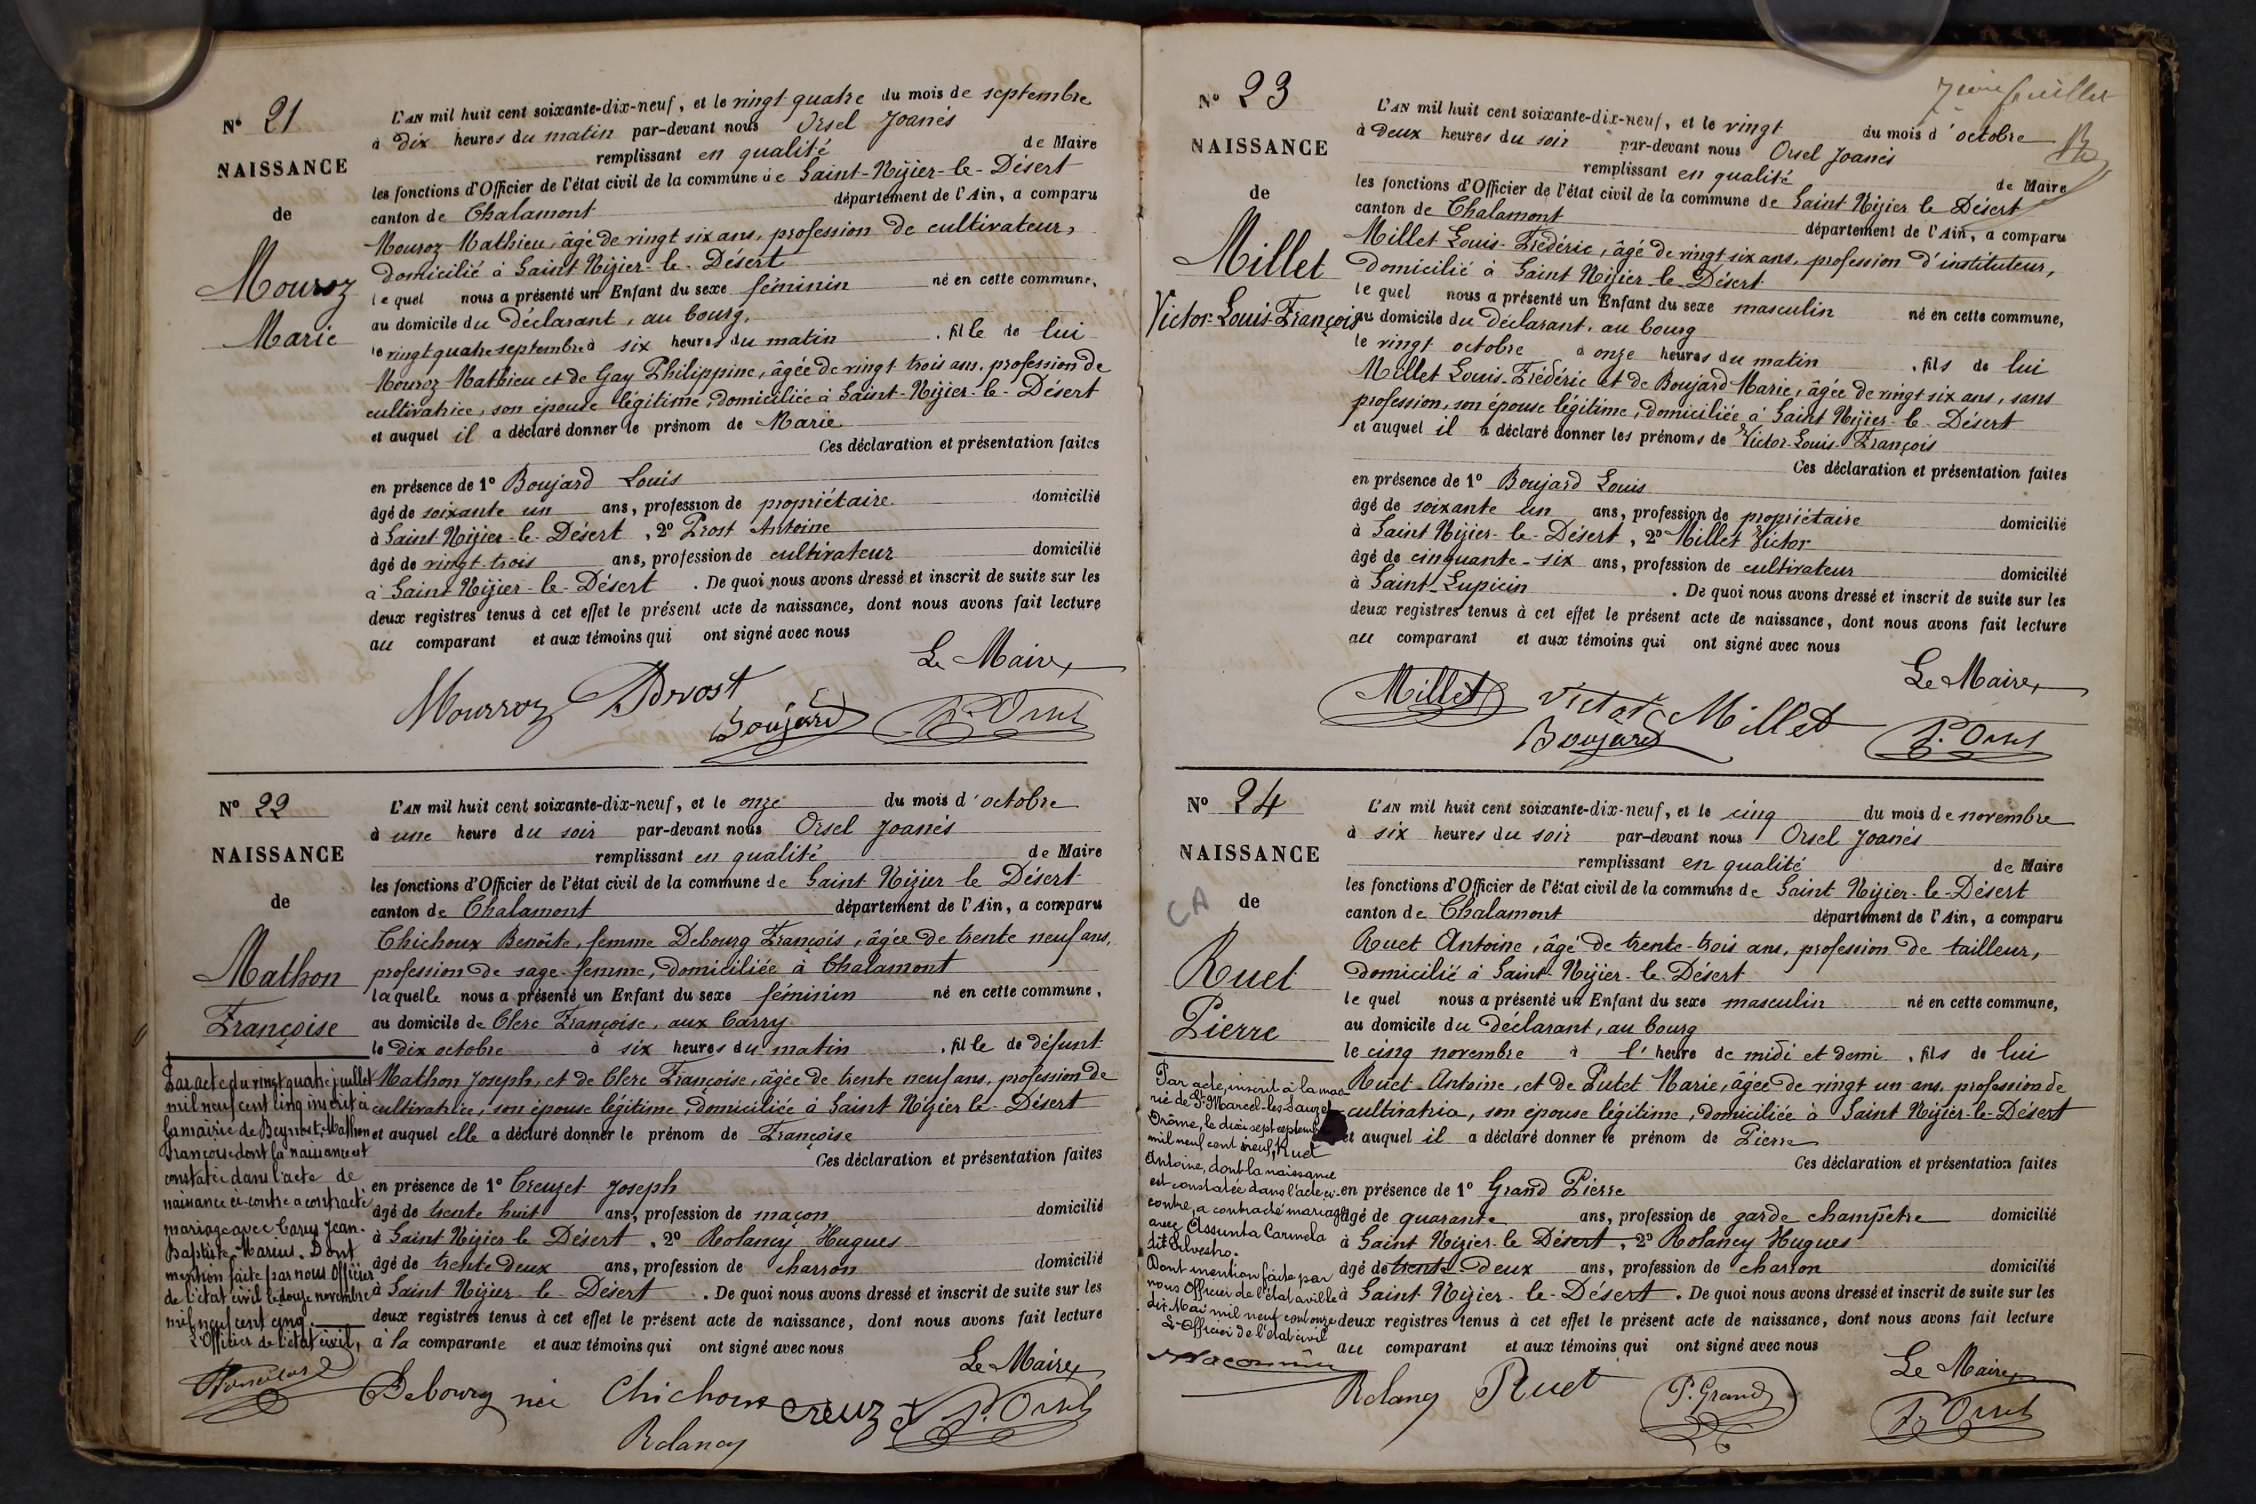 Nº 21
NAISSANCE
de
Mouroz
Marie
L'AN mil huit cent soixante-dix-neuf, et le vingt quatre du mois de septembre
à dix heures du matin par-devant nous Orsel Joanés
remplissant en qualité de Maire
les fonctions d'Officier de l'état civil de la commune de Saint-Nizier-le-Désert
canton de Chalamont département de l'Ain, a comparu
Mouroz Mathieu, âgé de vingt six ans, profession de cultivateur,
domicilié à Saint Nizier-le-Désert
lequel nous a présenté un Enfant du sexe féminin né en cette commune,
au domicile du déclarant, au bourg,
le vingt quatre septembre à six heures du matin, fille de lui
Mouroz Mathieu et de Gay Philippine, âgée de vingt trois ans, profession de
cultivatrice, son épouse légitime, domiciliée à Saint-Nizier-le-Désert
et auquel il a déclaré donner le prénom de Marie
Ces déclaration et présentation faites
en présence de 1º Boujard Louis
âgé de soixante un ans, profession de propriétaire domicilié
à Saint Nizier-le-Désert, 2º Prost Antoine
âgé de vingt-trois ans, profession de cultivateur domicilié
à Saint Nizier-le-Désert. De quoi nous avons dressé et inscrit de suite sur les
deux registres tenus à cet effet le présent acte de naissance, dont nous avons fait lecture
au comparant et aux témoins qui ont signé avec nous
Le Maire,
Mourroz Prost
Boujard J. Orsel
Nº 22
NAISSANCE
de
Mathon
Françoise
L'AN mil huit cent soixante-dix-neuf, et le onze du mois d'octobre
à une heure du soir par-devant nous Orsel Joanés
remplissant en qualité de Maire
les fonctions d'Officier de l'état civil de la commune de Saint Nizier le Désert
canton de Chalamont département de l'Ain, a comparu
Chichoux Benoîte, femme Debourg François, âgée de trente neuf ans,
profession de sage-femme, domiciliée à Chalamont
laquelle nous a présenté un Enfant du sexe féminin né en cette commune,
au domicile de Clerc Françoise, aux Carry
le dix octobre à six heures du matin, fille de défunt
Mathon Joseph, et de Clerc Françoise, âgée de trente neuf ans, profession de
cultivatrice, son épouse légitime, domiciliée à Saint Nizier le-Désert
et auquel elle a déclaré donner le prénom de Françoise
Ces déclaration et présentation faites
en présence de 1º Creuzet Joseph
âgé de trente huit ans, profession de maçon domicilié
à Saint Nizier le Désert, 2º Rolancy Hugues
âgé de trente deux ans, profession de charron domicilié
à Saint Nizier-le-Désert. De quoi nous avons dressé et inscrit de suite sur les
deux registres tenus à cet effet le présent acte de naissance, dont nous avons fait lecture
à la comparante et aux témoins qui ont signé avec nous
Le Maire,
Debourg née Chichoux Creuzet J. Orsel
Rolancy
Par acte du vingt quatre juillet
mil neuf cent cinq inscrit à
la mairie de Beynost, Mathon
Françoise dont la naissance est
constatée dans l'acte de
naissance ci-contre a contracté
mariage avec Carus Jean-
Baptiste, Marius. Dont
mention faite par nous Officier
de l'état civil le douze novembre
mil neuf cent cinq.
L'Officier de l'état civil,
7ième feuillet
Nº 23
NAISSANCE
de
Millet
Victor-Louis-François
L'AN mil huit cent soixante-dix-neuf, et le vingt du mois d'octobre
à deux heures du soir par-devant nous Orsel Joanés
remplissant en qualité de Maire
les fonctions d'Officier de l'état civil de la commune de Saint Nizier le Désert
canton de Chalamont département de l'Ain, a comparu
Millet Louis-Frédéric, âgé de vingt six ans, profession d'instituteur,
domicilié à Saint Nizier-le-Désert
lequel nous a présenté un Enfant du sexe masculin né en cette commune,
au domicile du déclarant, au bourg
le vingt octobre à onze heures du matin, fils de lui
Millet Louis-Frédéric et de Boujard Marie, âgée de vingt six ans, sans
profession, son épouse légitime, domiciliée à Saint Nizier-le-Désert
et auquel il a déclaré donner les prénoms de Victor-Louis-François
Ces déclaration et présentation faites
en présence de 1º Boujard Louis
âgé de soixante un ans, profession de propriétaire domicilié
à Saint Nizier-le-Désert, 2º Millet Victor
âgé de cinquante-six ans, profession de cultivateur domicilié
à Saint-Lupicin. De quoi nous avons dressé et inscrit de suite sur les
deux registres tenus à cet effet le présent acte de naissance, dont nous avons fait lecture
au comparant et aux témoins qui ont signé avec nous
Le Maire,
Millet Victor Millet
Boujard J. Orsel
Nº 24
NAISSANCE
CA
de
Ruet
Pierre
L'AN mil huit cent soixante-dix-neuf, et le cinq du mois de novembre
à six heures du soir par-devant nous Orsel Joanés
remplissant en qualité de Maire
les fonctions d'Officier de l'état civil de la commune de Saint Nizier-le-Désert
canton de Chalamont département de l'Ain, a comparu
Ruet Antoine, âgé de trente-trois ans, profession de tailleur,
domicilié à Saint-Nizier-le-Désert
lequel nous a présenté un Enfant du sexe masculin né en cette commune,
au domicile du déclarant, au bourg
le cinq novembre à l'heure de midi et demi, fils de lui
Ruet Antoine, et de Putet Marie, âgée de vingt un ans, profession de
cultivatrice, son épouse légitime, domiciliée à Saint Nizier-le-Désert
et auquel il a déclaré donner le prénom de Pierre
Ces déclaration et présentation faites
en présence de 1º Grand Pierre
âgé de quarante ans, profession de garde champêtre domicilié
à Saint Nizier-le Désert, 2º Rolancy Hugues
âgé de trente-deux ans, profession de charron domicilié
à Saint-Nizier-le-Désert. De quoi nous avons dressé et inscrit de suite sur les
deux registres tenus à cet effet le présent acte de naissance, dont nous avons fait lecture
au comparant et aux témoins qui ont signé avec nous
Le Maire,
Rolancy Ruet P. Grand J. Orsel
Par acte, inscrit à la mai-
rie de St Marcel-les-Sauzet
Drôme, le dix sept septembre
mil neuf cent neuf, Ruet
Antoine, dont la naissance
est constatée dans l'acte ci-
contre, a contracté mariage
avec Assunta Carmela
dit Silvestro.
Dont mention faite par
nous Officier de l'état civil le
dix Mai mil neuf cent onze
L'Officier de l'état civil